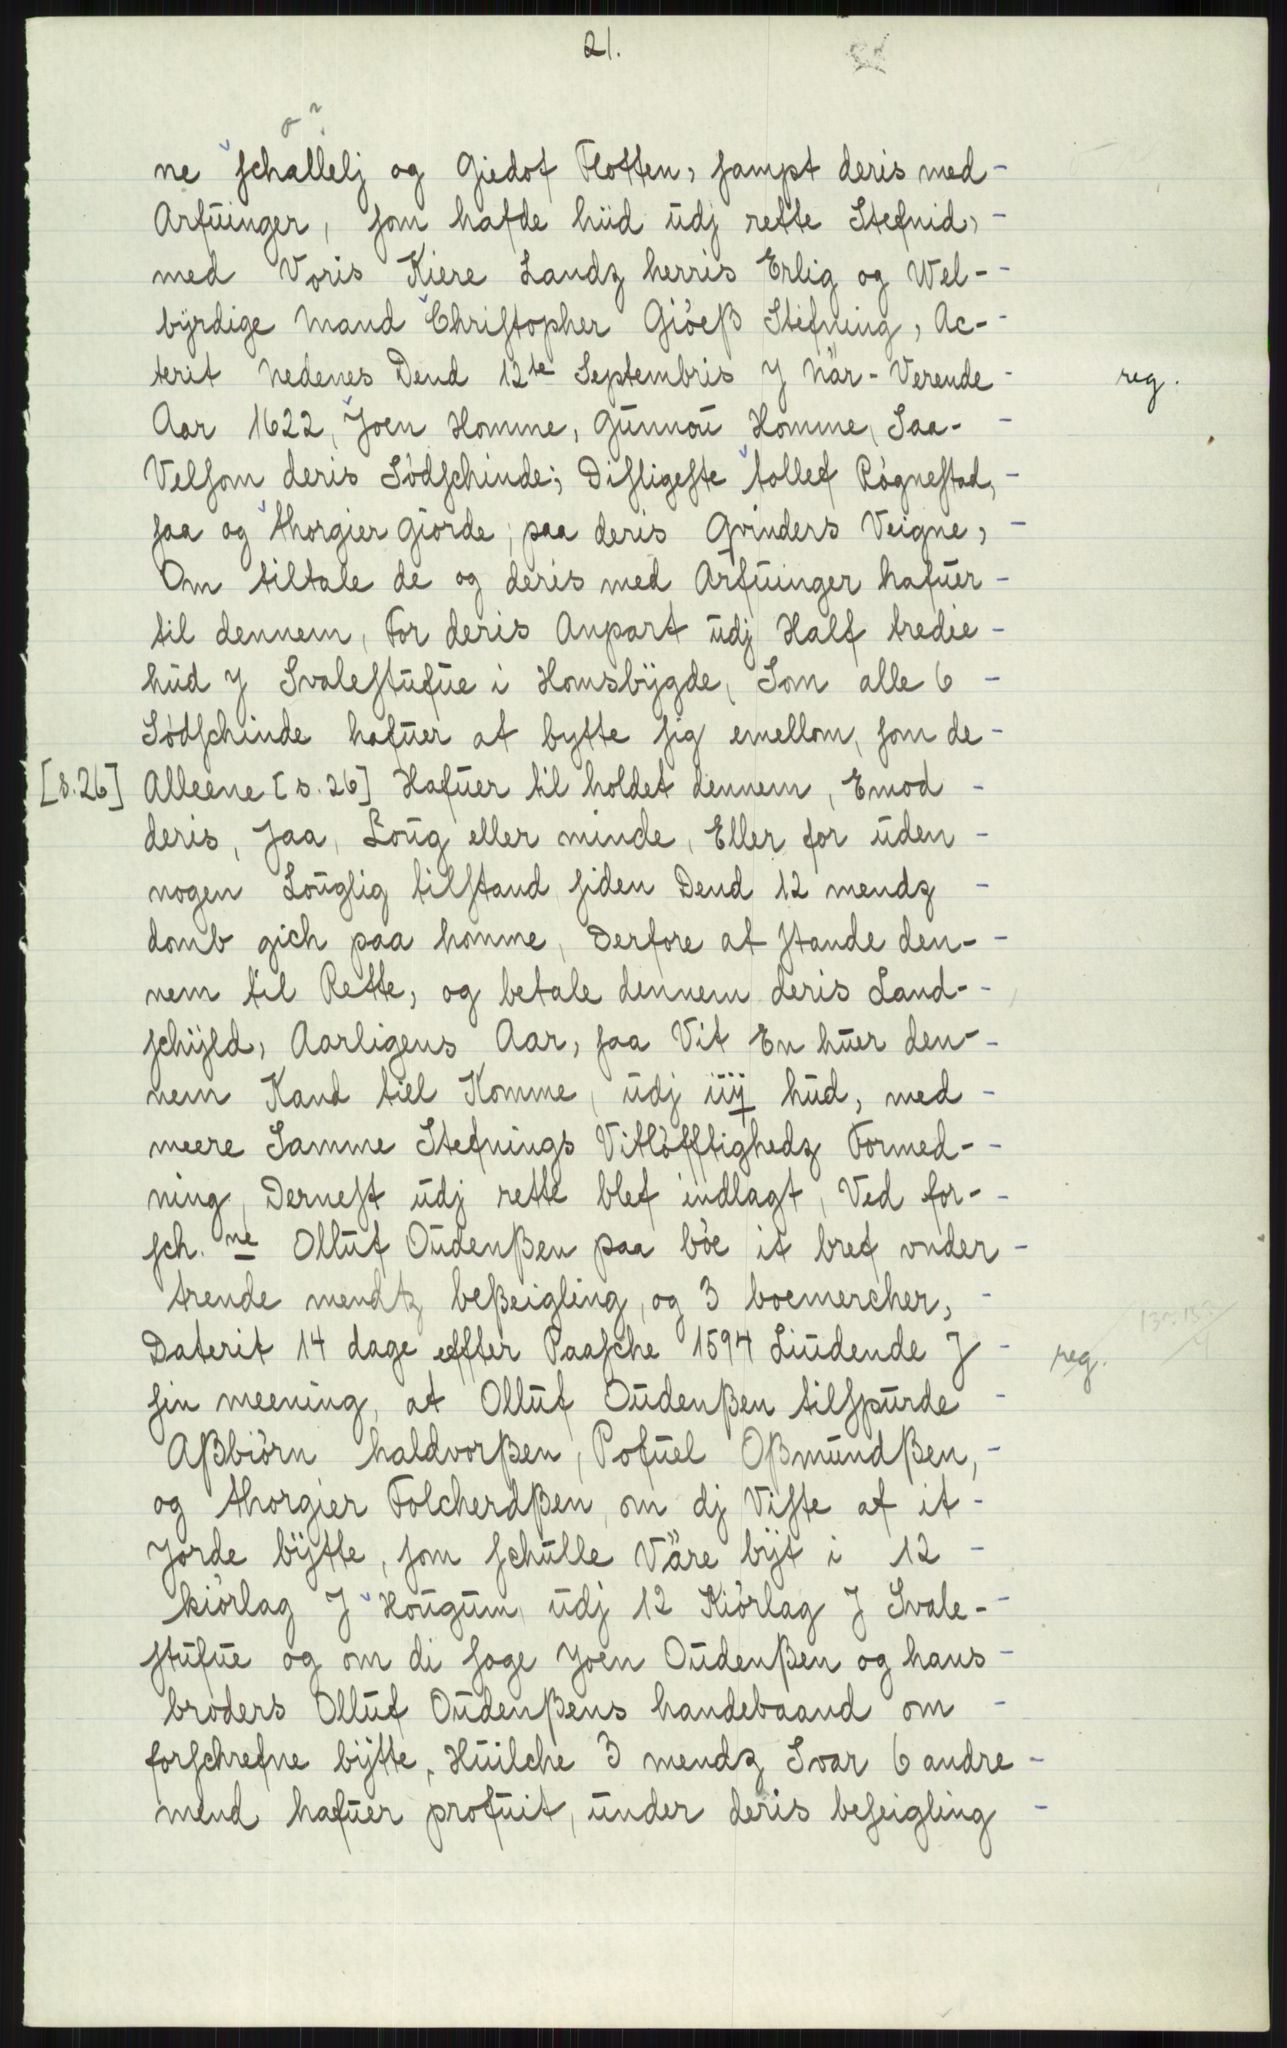 21.
o ?
ne schallelj og Giedof Flotten, sampt deris med
Arfuinger, som hafde hiid udj rette Stefnid,
med Voris Kiere Landz herris Erlig og Wel-
byrdige Mand Christopher Giöeß Stefning, Ac-
terit Nedenes Dend 12te Septembris J När-Verende
reg.
Aar 1622, Joen Homme, Gunnou Homme, Saa-
Velsom deris Södschinde; Disligeste tollef Rögnestad,
saa og thorgier Giorde, paa deris Qvinders Veigne,
Om tiltale de og deris med Arfuinger hafuer
til dennem, For deris Anpart udj Half tredie
hud J Svalestufue i Homsbÿgde, Som alle 6
Södschinde hafuer at bytte sig emellom, som de
[s.26] Alleene [s.26] Hafuer til holdet dennem, Emod
deris, Jaa, Loug eller minde, Eller for uden
nogen Louglig tilstand siden Dend 12 mendz
domb gich paa homme, Derfore at stande den-
nem til Rette, og betale dennem deris Land-
schÿld, Aarligens Aar, saa Vit En huer den-
nem Kand tiel Komme, udj iiÿ hud, med
meere Samme Stefnings Vitlöfftighedz Formed-
ning, Dernest udj rette blef indlagt, Ved for-
sch. ne Olluf Oudenßen paa böe it bref vnder
trende mendtz beßeigling, og 3 boemercher,
Daterit 14 dage effter Paasche 1594 Liudende J
reg.
sin meening, at Olluf Oudenßen tilspurde
Aßbiörn haldvorßen, Pofuel Oßmundßen,
og thorgier Folcherdßen, om dj Viste af it
Jorde bÿtte, som schulle Väre bÿt i 12
kiörlag J Hougum, udj 12 Kiörlag J Svale-
stufue og om di soge Joen Oudenßen og hans
broders Olluf Oudenßens handebaand om
forschrefne bÿtte, Huilche 3 mendz Svar 6 andre
mend hafuer profuit, under deris beseigling